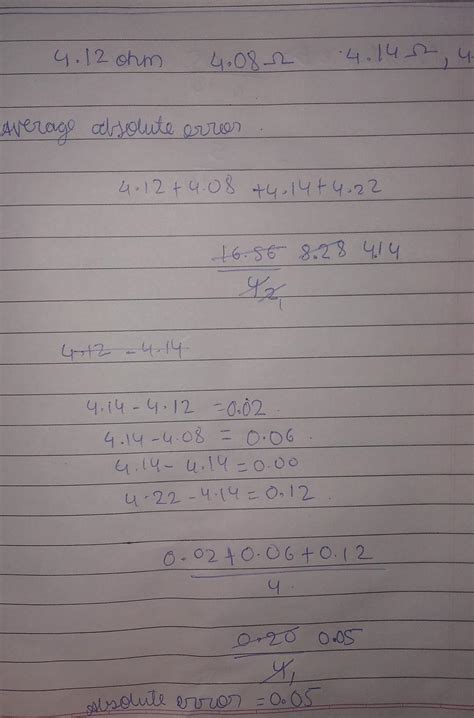 4.12 ohm 4.08Ω 4.14Ω, 4
Average absolute error.
4.12+4.08 +4.14+4.22
16.56 8.28 4.14
4 2 1
4.12 - 4.14
4.14-4.12 = 0.02.
4.14-4.08 = 0.06.
4.14-4.14 = 0.00
4.22-4.14 = 0.12.
0.02+0.06+0.12
4.
0.20 0.05
4 1
Absolute error = 0.05